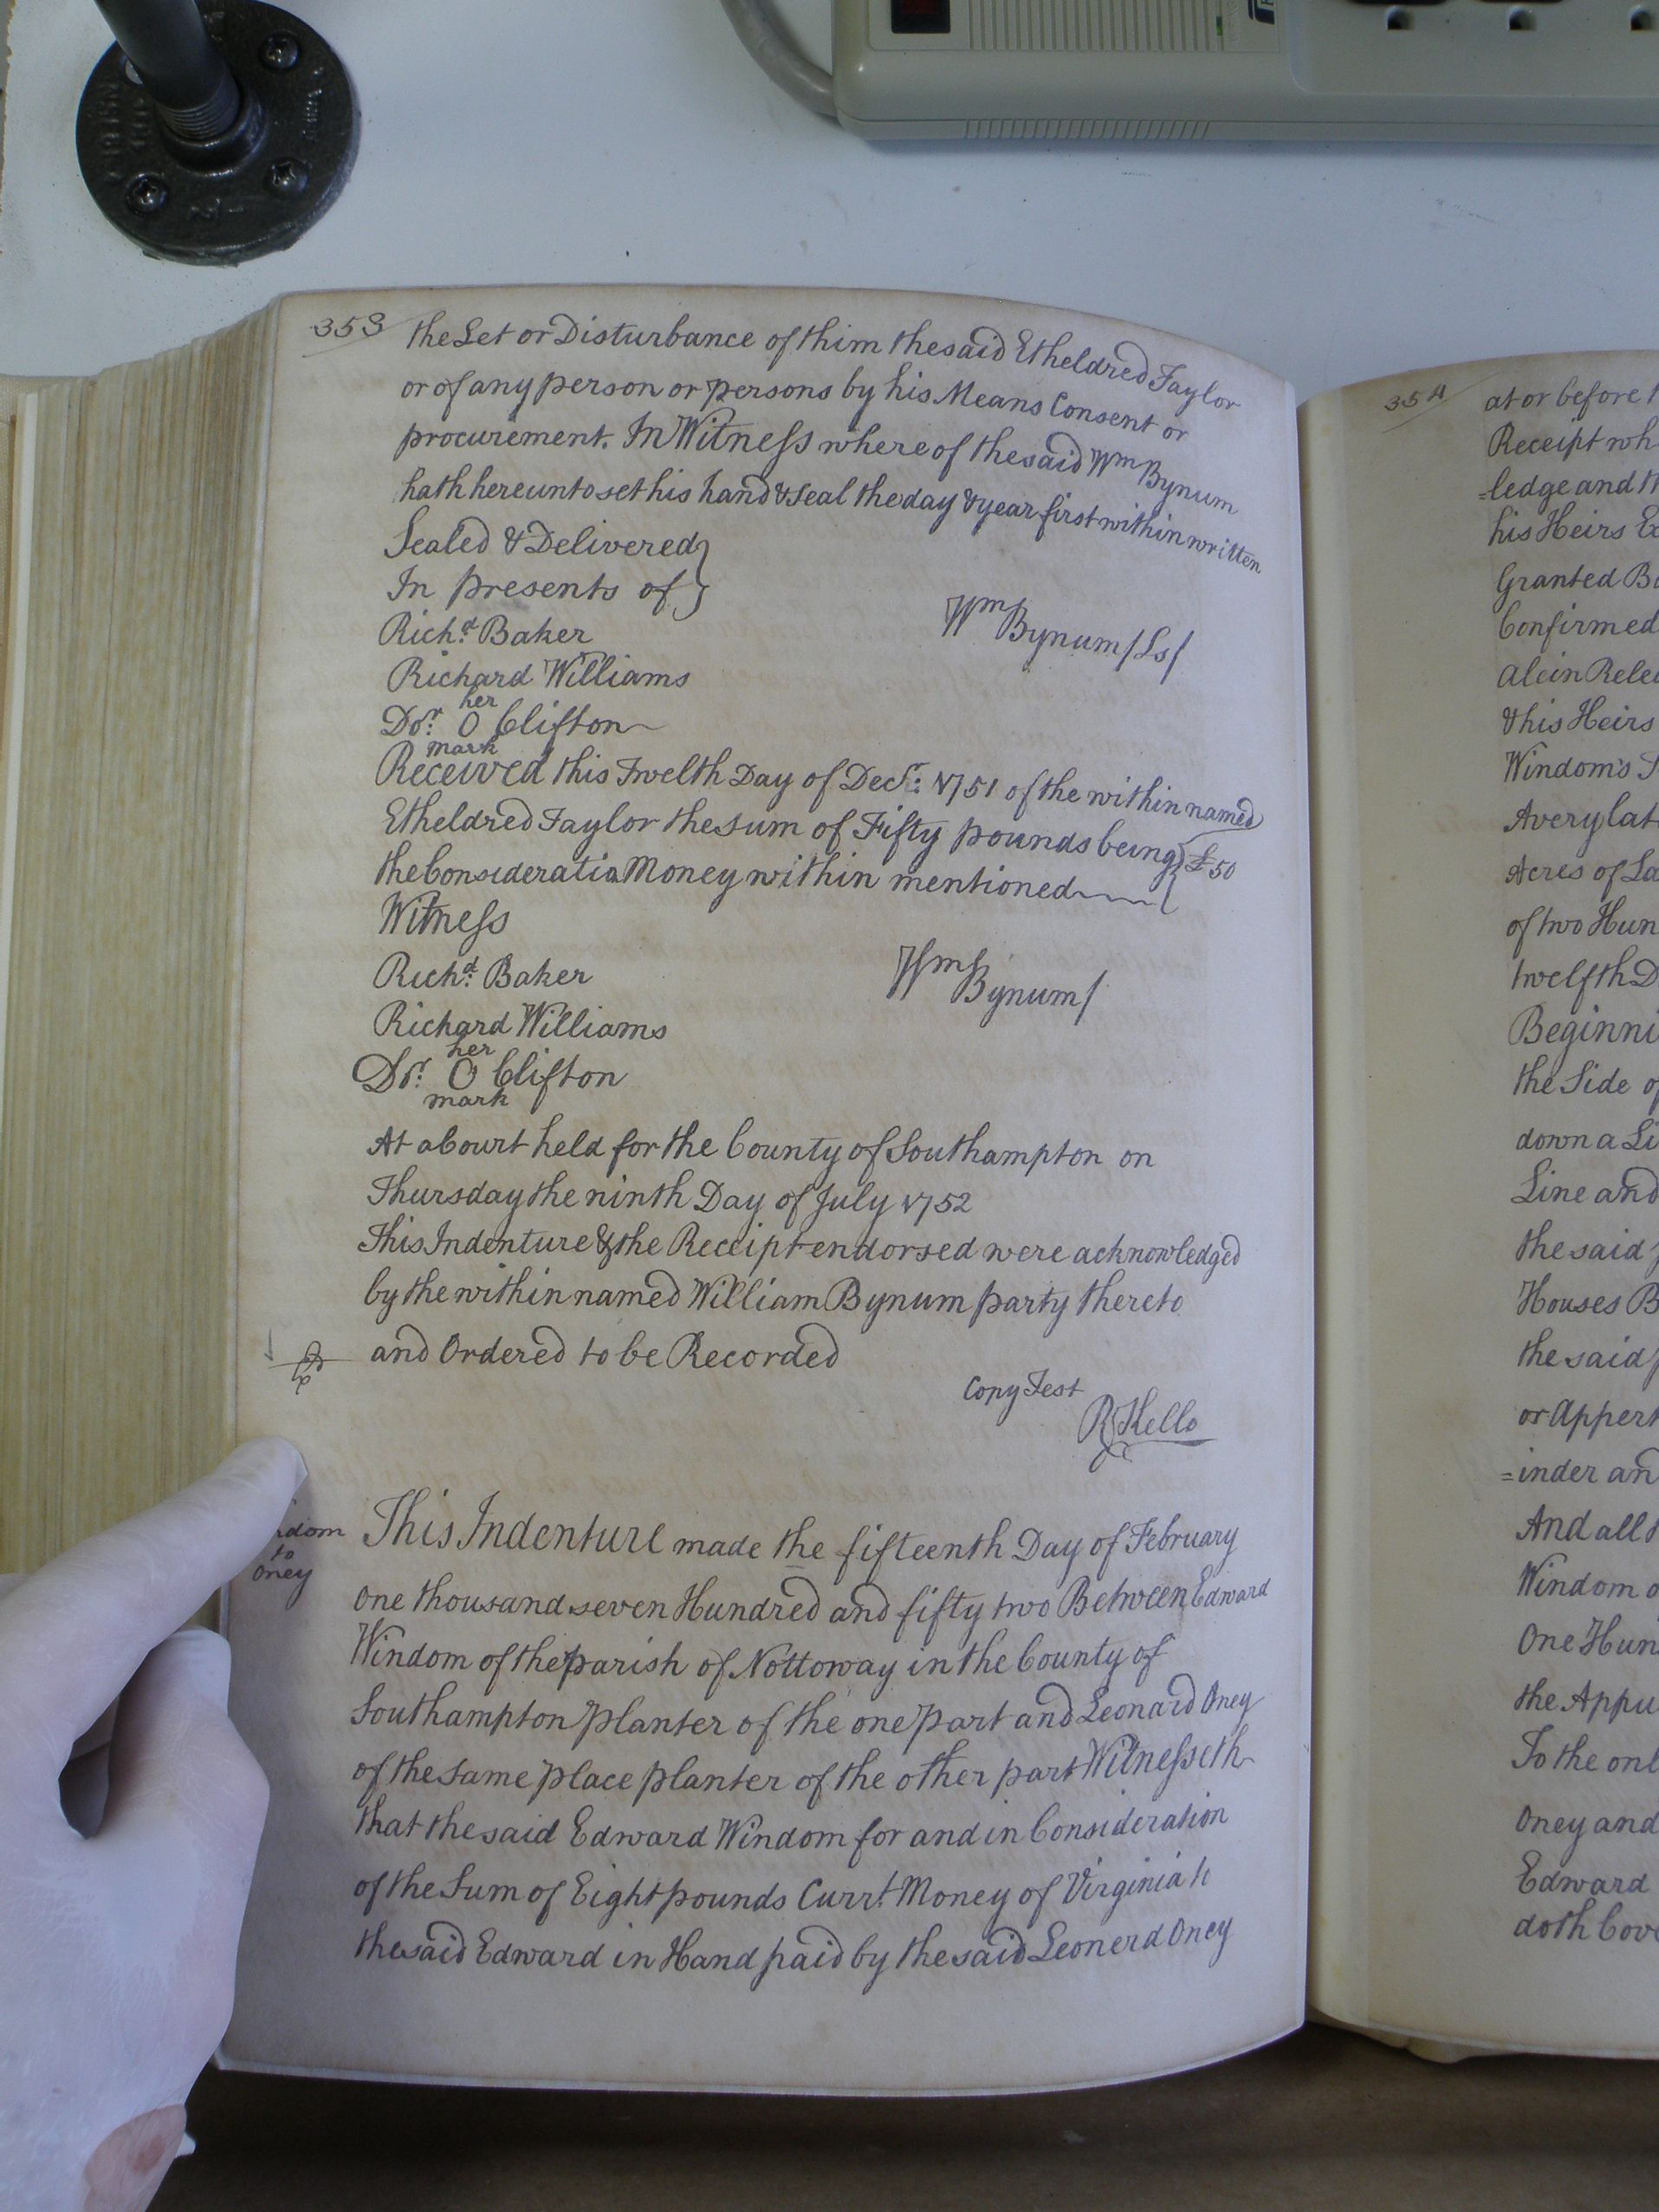 353
the Let or Disturbance of thim the said Etheldred Taylor
or of any person or persons by his Means Consent or
procurement. In Witness where of the said Wm Bynum
hath hereunto set his hand & Seal the day & year first within written
Sealed & Delivered }
In presents of }
Richd. Baker
Wm Bynum /Ls/
Richard Williams
her
Dor. O Clifton
mark
Received this Twelth Day of Decr: 1751 of the within named
Etheldred Taylor the Sum of Fifty pounds being } £50
the Consideratio Money within mentioned
Witness
Richd. Baker
Wm Bynum/
Richard Williams
her
Dr. O Clifton
mark
At a Court held for the County of Southampton on
Thursday the ninth Day of July 1752
This Indenture & the Receipt endorsed were acknowledged
by the within named William Bynum party thereto
and Ordered to be Recorded
Copy Test
R Kello
dom
to
Oney
This Indenture made the fifteenth Day of February
One thousand seven Hundred and fifty two Between Edward
Windom of the parish of Nottoway in the County of
Southampton planter of the one part and Leonard Oney
of the Same place planter of the other part Witnesseth
that the said Edward Windom for and in Consideration
of the Sum of Eight pounds Currt. Money of Virginia to
the said Edward in Hand paid by the said Leonerd Oney
354
at or before
Receipt wh
=ledge and th
his Heirs Ex
Granted Ba
Confirmed
Alein Relea
& his Heirs
Windom's
Avery lat
Acres of La
of two Hun
twelfth D
Beginni
the Side of
down a Li
Line and
the said
Houses B
the said p
or Appert
=inder an
And all t
Windom o
One Hun
the Appu
To the onl
Oney and
Edward
doth Cove